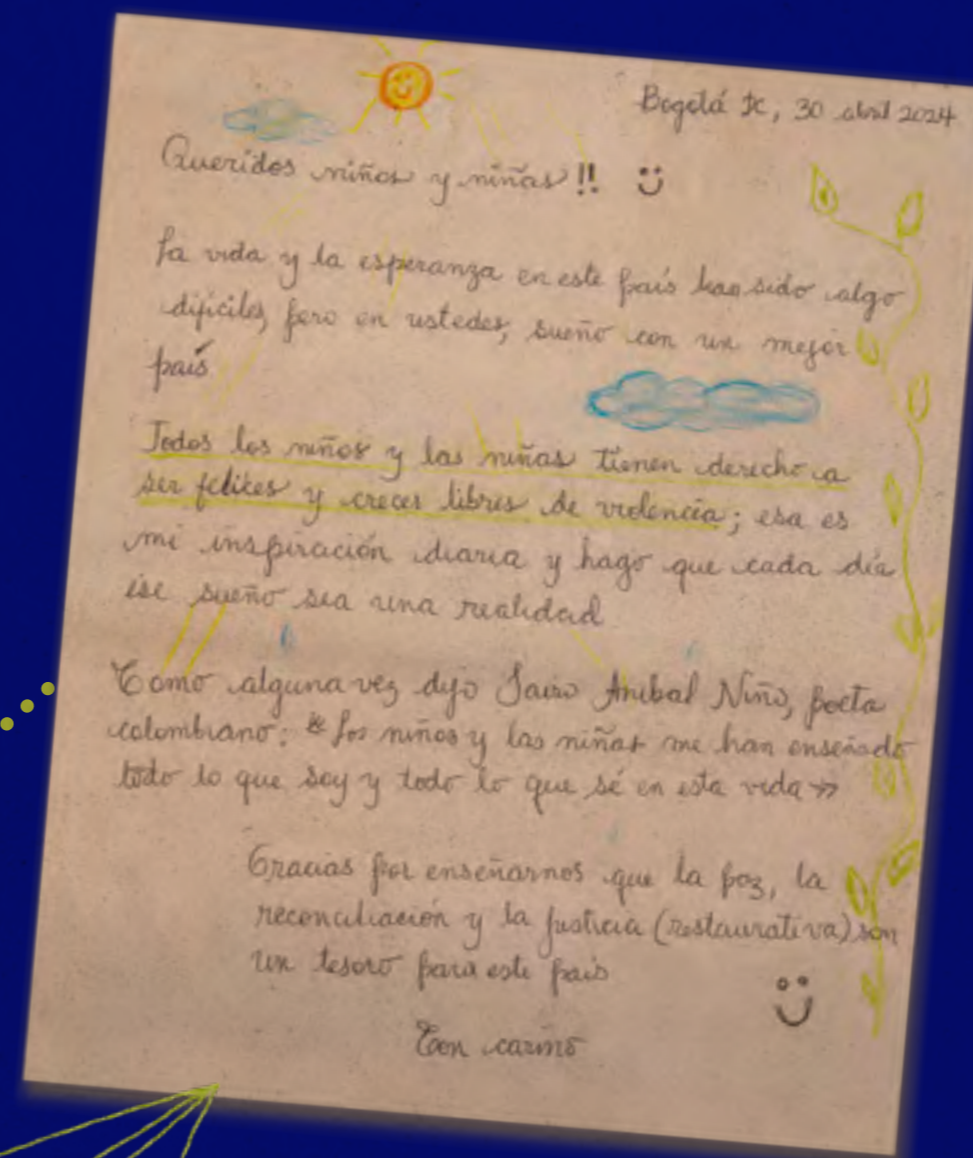 Bogotá DC, 30 abril 2024
Queridos niños y niñas!!
La vida y la esperanza en este país han sido algo
difíciles, pero en ustedes, sueño con un mejor
país
Todos los niños y las niñas tienen derecho a
ser felices y crecer libres de violencia; esa es
mi inspiración diaria y hago que cada día
ese sueño sea una realidad
Como alguna vez dijo Jairo Anibal Niño, poeta
colombiano: "Los niños y las niñas me han enseñado
todo lo que soy y todo lo que sé en esta vida»
Gracias por enseñarnos que la paz, la
reconciliación y la justicia (restaurativa) son
un tesoro para este país
Con cariño